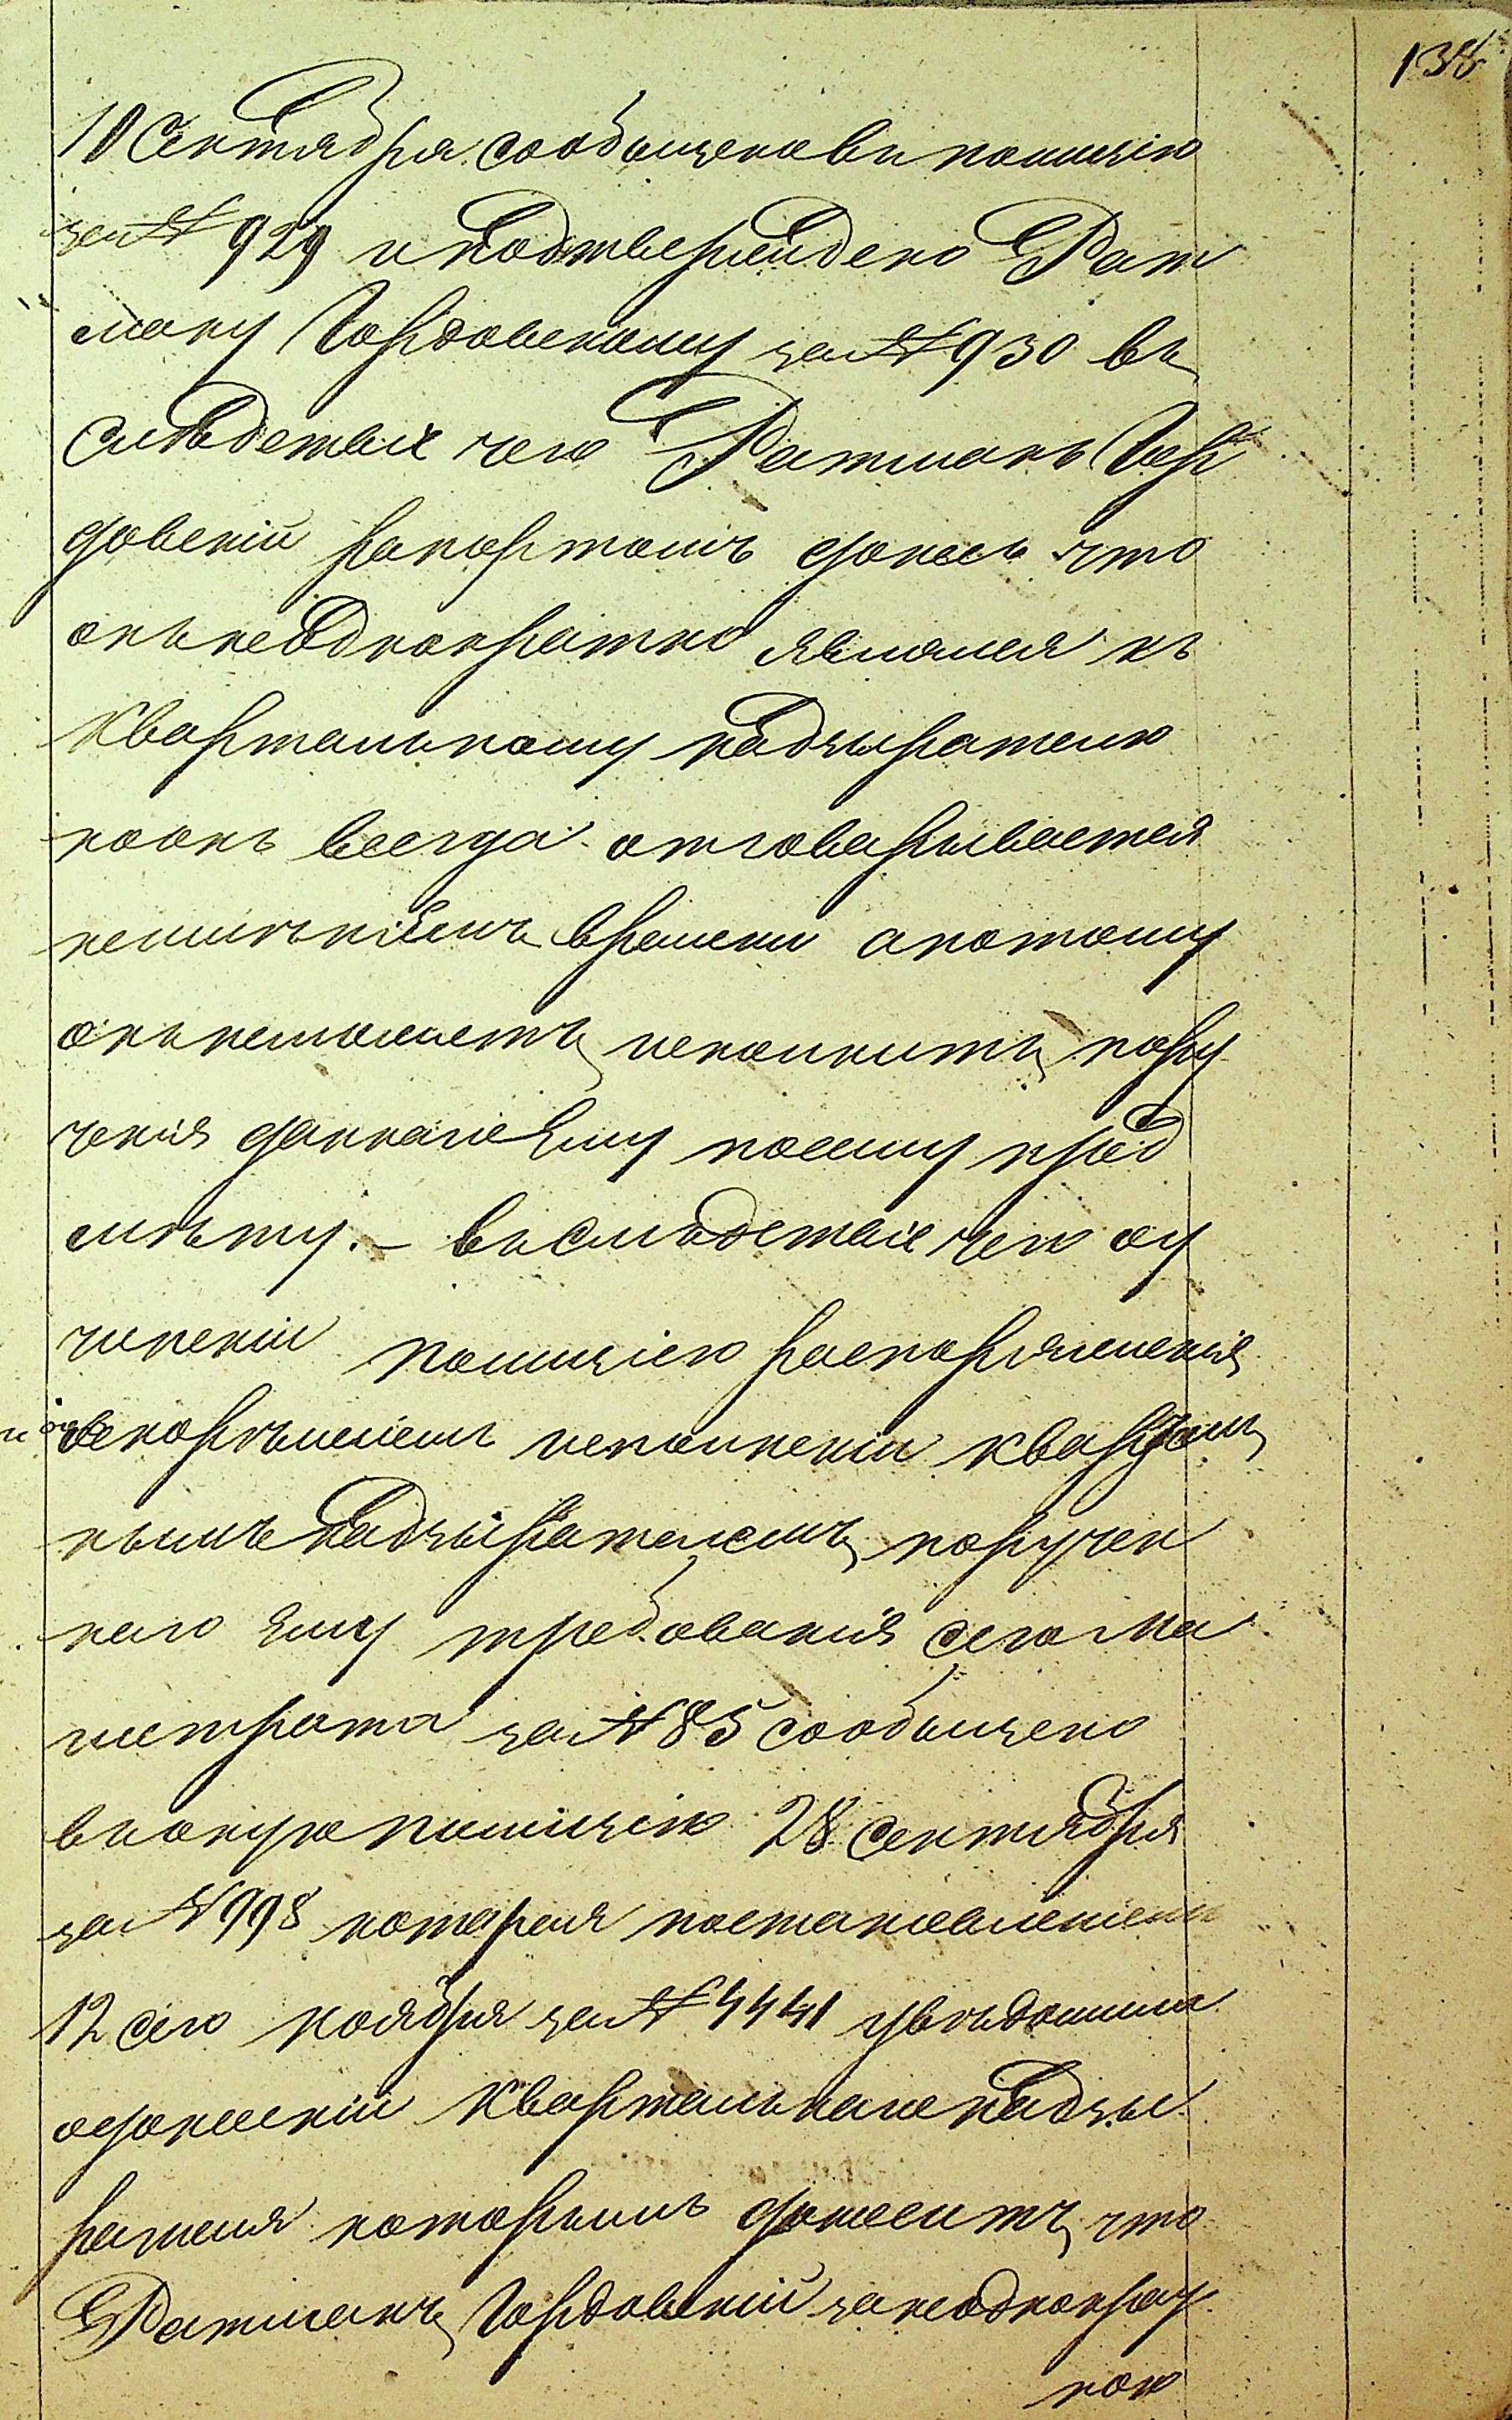 138
10 Сентября сообщено въ полицію
за № 929 и подтверждено Рат
ману Гордовскому за № 930 въ
слѣдствіе чего Ратманъ Гор
довскій рапортомъ донесъ что
онъ неоднократно являлся къ
Квартальному надзырателю
но онъ всегда отговарывается
неимѣніемъ времени а потому
онъ неможетъ исполнить пору
ченія даннаго ему посему пред
мѣту. – въ слѣдствіе чего о у
чиненіи полиціею распоряженія
и о скорѣйшемъ исполненіи кварталь
нымъ надзырателемъ поручен
наго ему требованія сего Ма
гистрата за № 85 сообщено
въ оную полицію 28 сентября
за № 998 которая постановленіемъ
12 сего ноября за № 4441 увѣдомила
одонесеніи Квартальнаго надзы
рателя которымъ доноситъ что
Ратманъ Гордовскій за неоднократ
ною